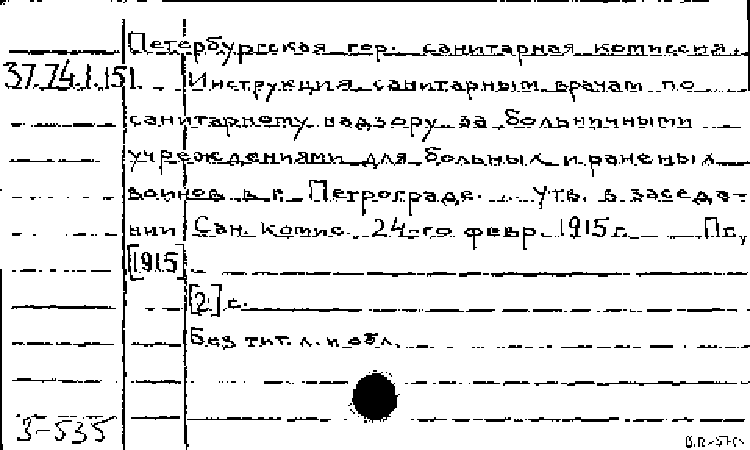 Петербургская гор. санитарная комиссия.
37.74.1.151. Инструкция санитарным врачам по
санитарному надзору за больничными
учреждениями для больных и раненых
воинов в г. Петрограде. Утв. в заседа-
нии Сан. комис. 24-го февр. 1915 г. Пг.,
[1915]
[2] с.
Без тит. л. и обл.
3-535